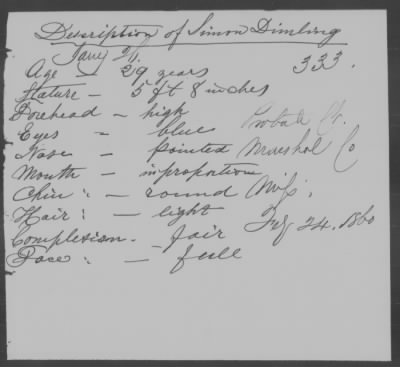 Description of Simon Dimling
Jany 21.
333.
Age — 29 years
Stature — 5 ft 8 inches
Forehead — high
Eyes — blue
Probate Ct.
Nose — pointed
Marshal Co
Mouth — in proportion
Chin : — round
Miss.
Hair : — light
24. 1860
Complexion — fair
Face : — full